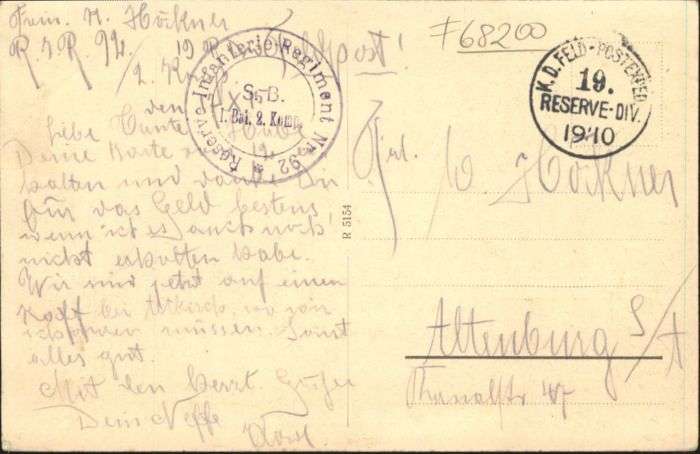 H. Höckner
R. I. R. 92. 19. R.
Feldpost!
F68200
Reserve-Infanterie-Regiment Nr. 92
S.B.
1. Bat. 2. Komp.
K.D. FELD-POSTEXPED.
19.
RESERVE-DIV.
19 10
den
Liebe Tante Habe
Deine Karte er-
halten und danke Dir
für das Geld bestens,
wenn ich es auch noch
nicht erhalten habe.
Wir sind jetzt auf einen
bei wo wir
müssen. Sonst
alles gut.
Mit den herzl. Grüßen
Dein Neffe
Frl. Höckner
R 5154
Altenburg S/A
47